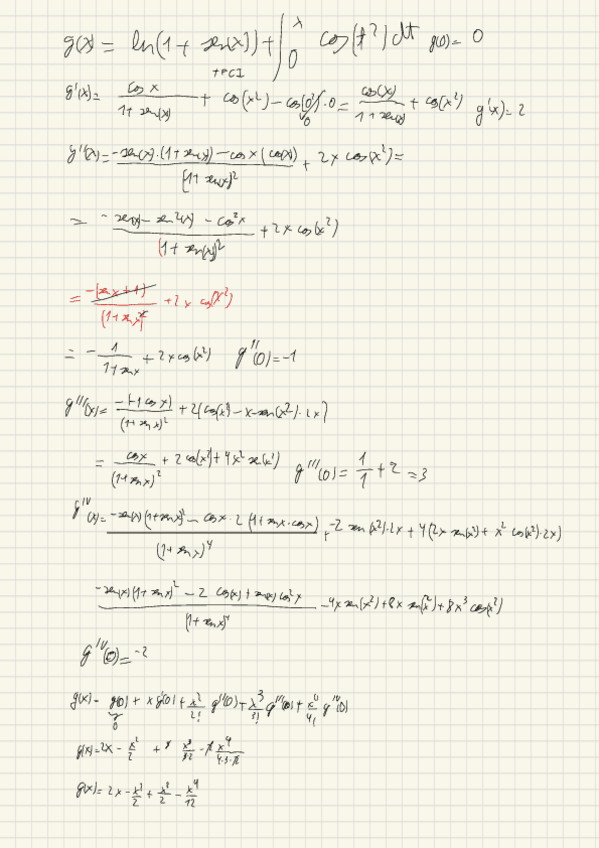 g(x) = ln(1 + sen(x)) + ∫₀ˣ cos(t²) dt g(0) = 0
+FCI
g'(x) = cos x / (1 + sen(x)) + cos(x²) - cos(0²)·0 = cos(x) / (1 + sen(x)) + cos(x²) g'(x) = 2
0
g''(x) = (-sen(x)·(1+sen(x)) - cos x (cos(x))) / (1+sen(x))² + 2x cos(x²) =
= (-sen(x) - sen²(x) - cos²x) / (1 + sen(x))² + 2x cos(x²)
= -(sen x + 1) / (1 + sen x)² + 2x cos(x²)
= - 1 / (1 + sen x) + 2x cos(x²) g''(0) = -1
g'''(x) = -(-1 cos x) / (1 + sen x)² + 2(cos(x²) - x·sen(x²)·2x)
= cos x / (1 + sen x)² + 2 cos(x²) + 4x² sen(x²) g'''(0) = 1/1 + 2 = 3
g^IV(x) = (-sen(x)(1+sen x)² - cos x · 2 (1+sen x · cos x)) / (1+sen x)⁴ + -2 sen(x²)·2x + 4(2x sen(x²) + x² cos(x²)·2x)
(-sen(x)(1+sen x)² - 2 cos(x) + sen(x) cos²x) / (1+sen x)⁴ - 4x sen(x²) + 8x sen(x²) + 8x³ cos(x²)
g^IV(0) = -2
g(x) = g(0) + x g'(0) + x²/2! g''(0) + x³/3! g'''(0) + x⁴/4! g^IV(0)
0
g(x) = 2x - x²/2 + 3 x³/3·2 - 2 x⁴/4·3·2
g(x) = 2x - x²/2 + x³/2 - x⁴/12